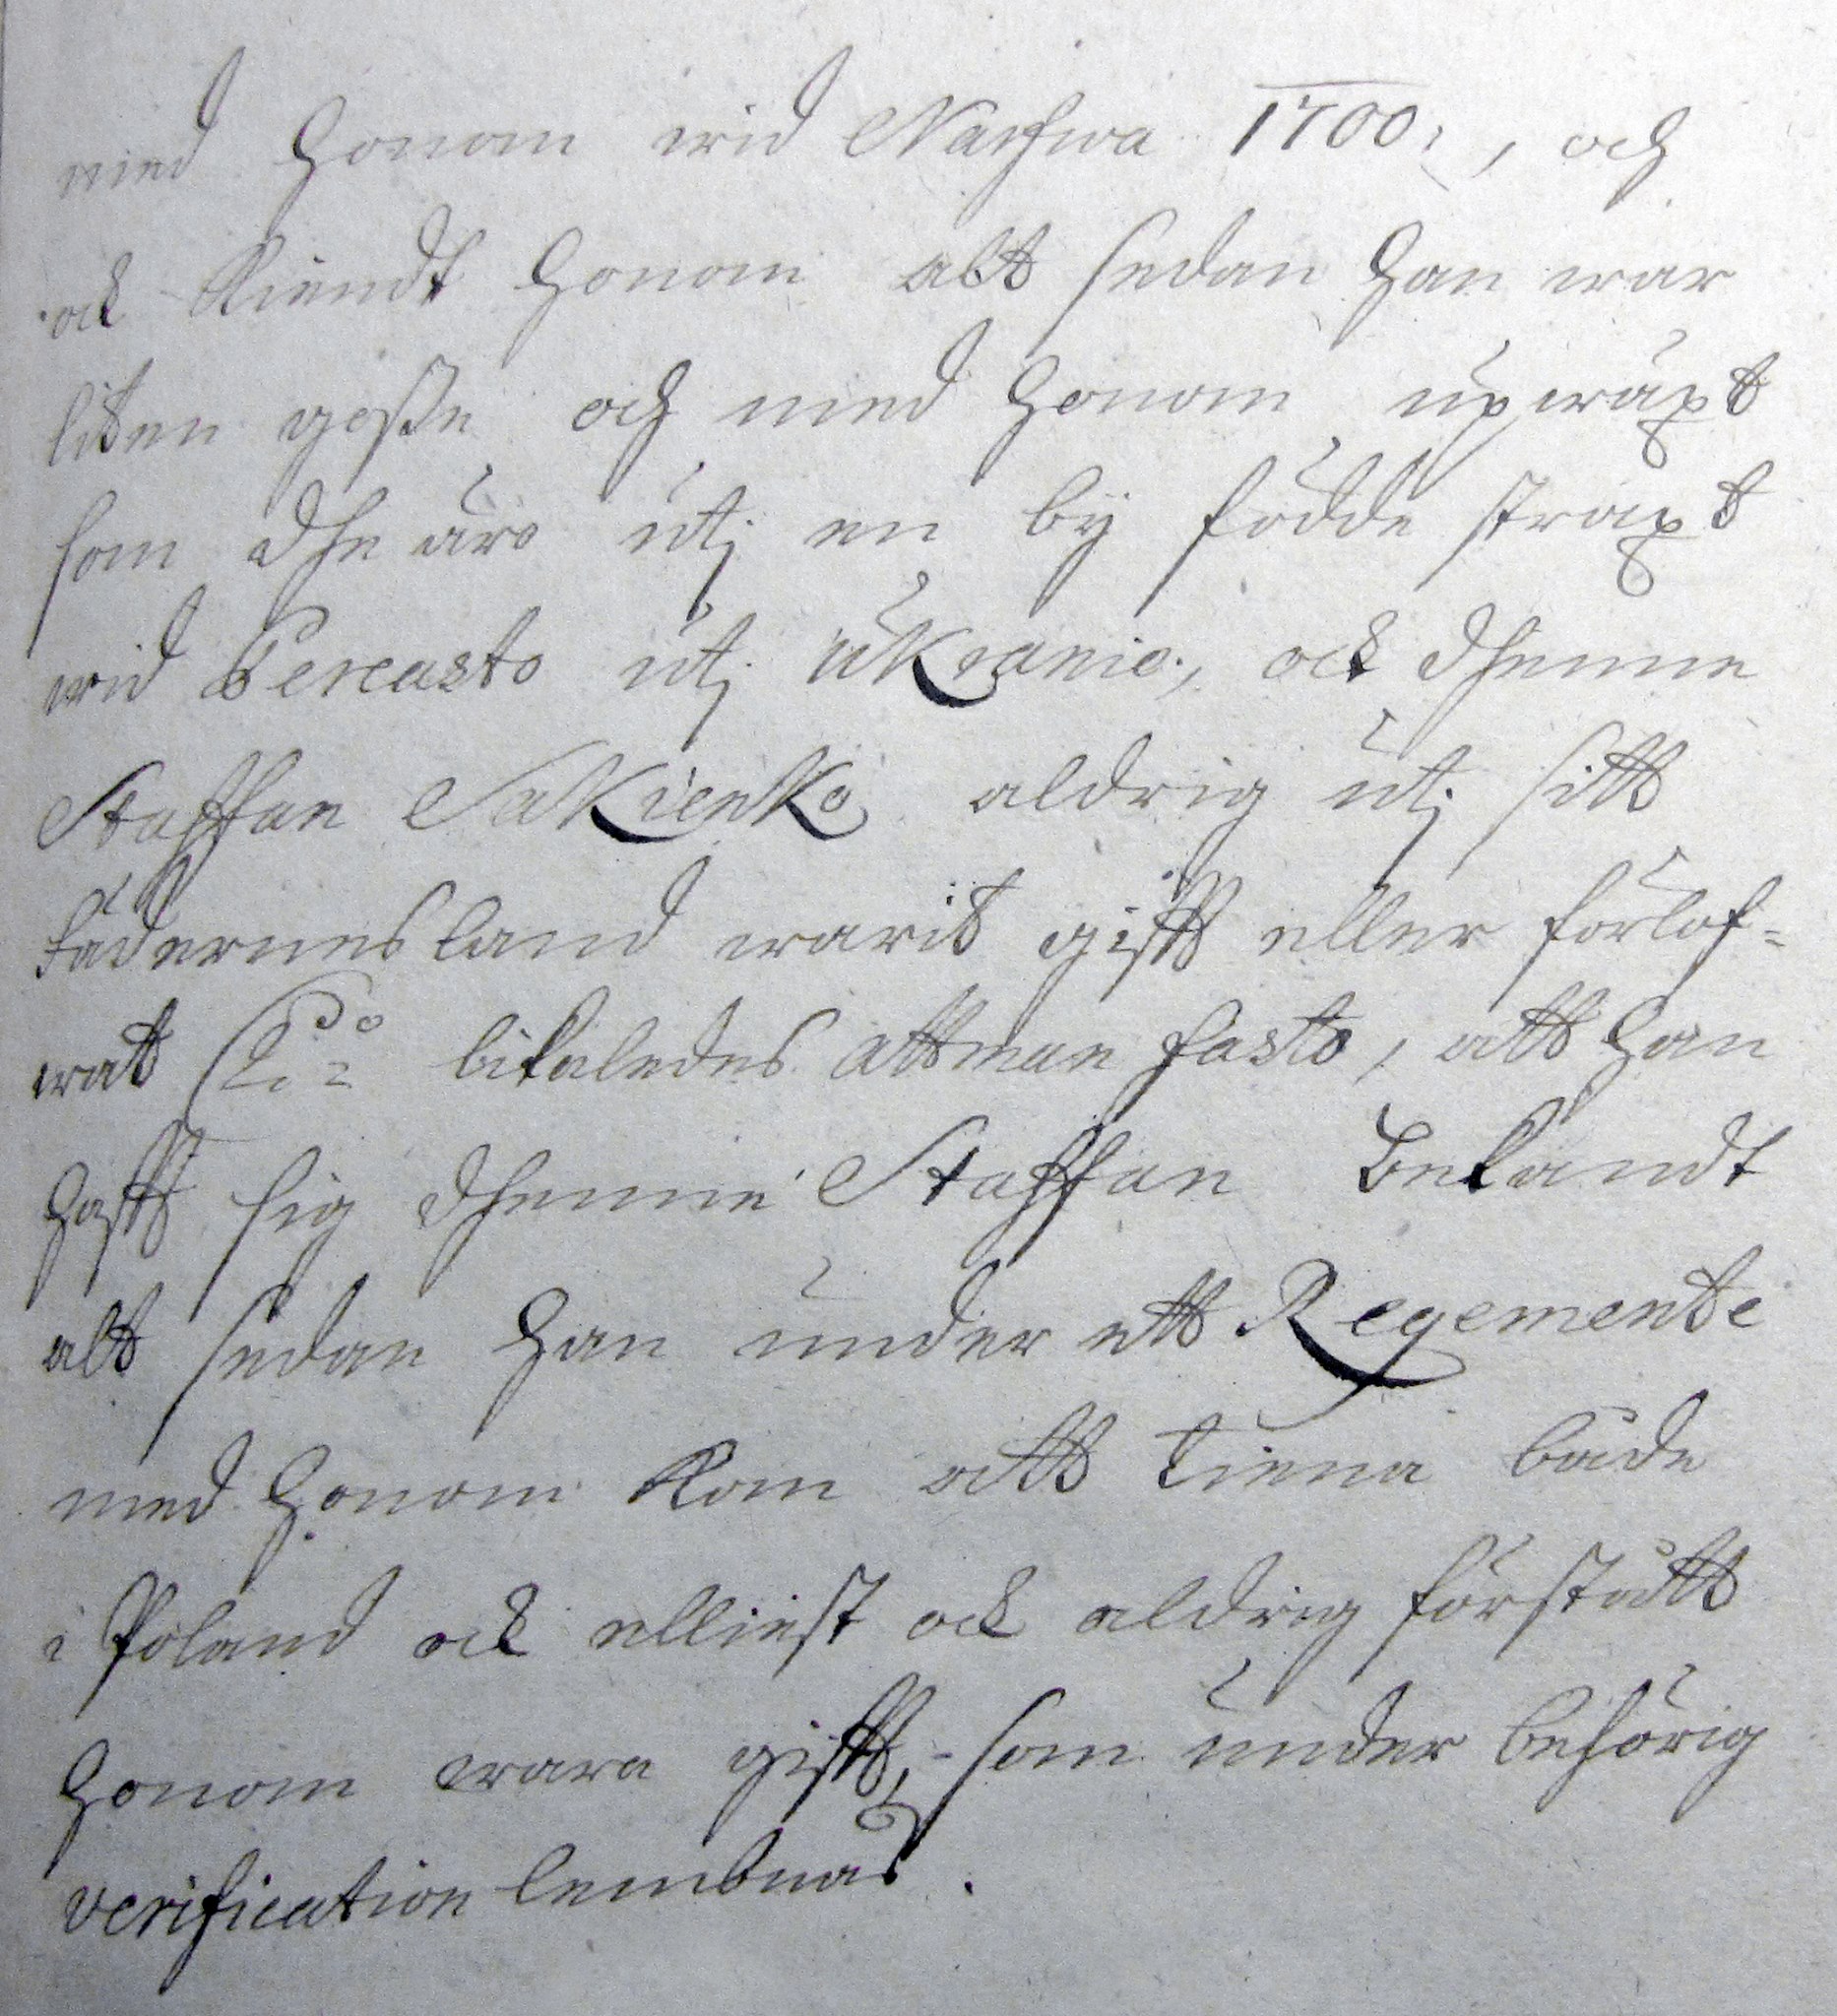 med honom wid Narfwa 1700, och
ock kiendt honom alt sedan han war
liten gosse och med honom upwäxt
som dhe äro utj en by födde straxt
wid Pereasto utj Ukranie, ock dhenne
Staffan Sakienko aldrig utj sitt
fädernesland warit gifft eller förlof-
wat 2:do likaledes attman fasto, att han
hafft sig dhenne Staffan bekandt
alt sedan han under ett Regemente
med honom kom att tiena både
i Poland ock elliest ock aldrig förstått
honom wara gifft, som under behörig
verification lembnas.